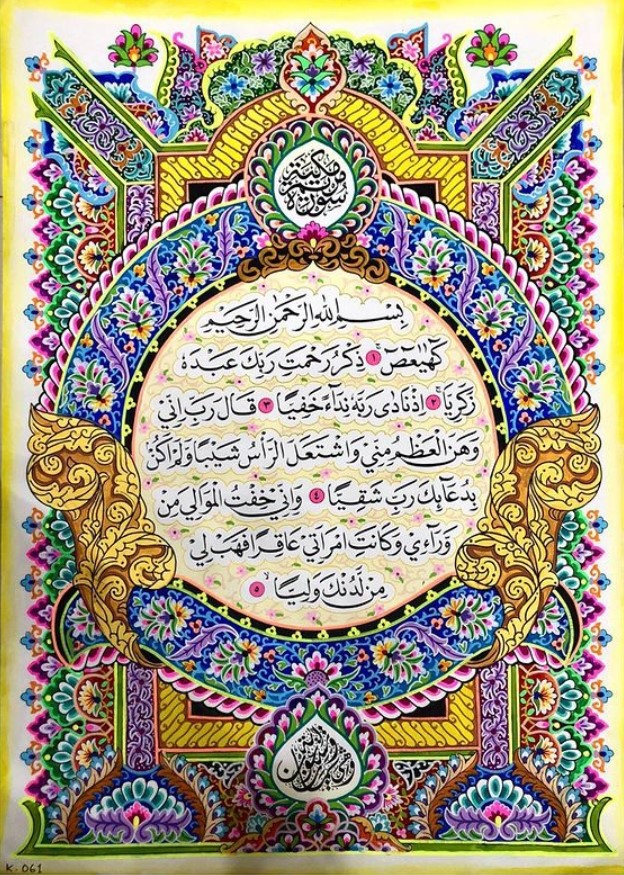 سورة مريم مكية
بسم الله الرحمن الرحيم
كۤهٰيٰعۤصۤ ١ ذِكْرُ رَحْمَتِ رَبِّكَ عَبْدَهٗ
زَكَرِيَّا ٢ اِذْ نَادٰى رَبَّهٗ نِدَاۤءً خَفِيًّا ٣ قَالَ رَبِّ اِنِّي
وَهَنَ الْعَظْمُ مِنِّيْ وَاشْتَعَلَ الرَّأْسُ شَيْبًا وَّلَمْ اَكُنْ
بِدُعَاۤىِٕكَ رَبِّ شَقِيًّا ٤ وَاِنِّي خِفْتُ الْمَوَالِيَ مِنْ
وَّرَاۤءِيْ وَكَانَتِ امْرَاَتِيْ عَاقِرًا فَهَبْ لِي
مِنْ لَّدُنْكَ وَلِيًّا ٥
K. 061